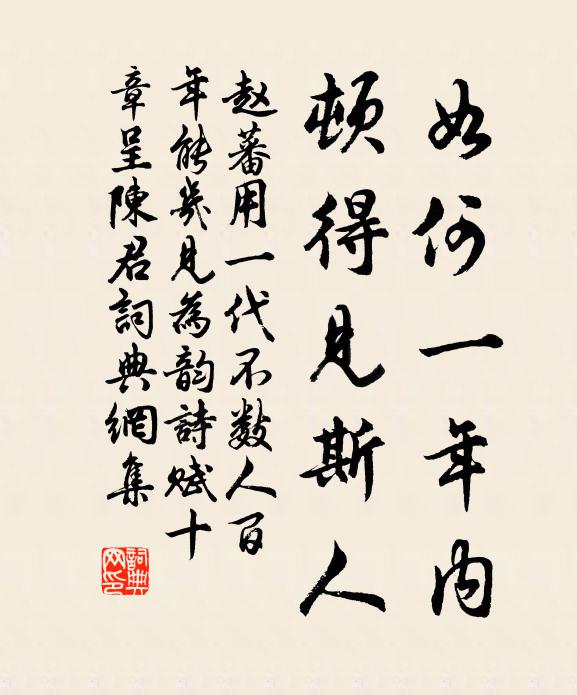 如何一年内
頓得見斯人
赵蕃用一代不数人百
年能幾見為韵詩赋十
章呈陳君詞典網集
詞典网印